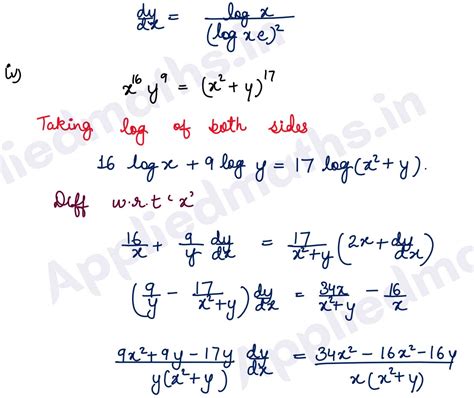 dy/dx = log x / (log xe)²
(v)
x¹⁶ y⁹ = (x² + y)¹⁷
Taking log of both sides
16 log x + 9 log y = 17 log (x² + y).
Diff w.r.t 'x'
16/x + 9/y dy/dx = 17/(x²+y) (2x + dy/dx)
(9/y - 17/(x²+y)) dy/dx = 34x/(x²+y) - 16/x
(9x² + 9y - 17y)/(y(x²+y)) dy/dx = (34x² - 16x² - 16y)/(x(x²+y))
Appliedmaths.in